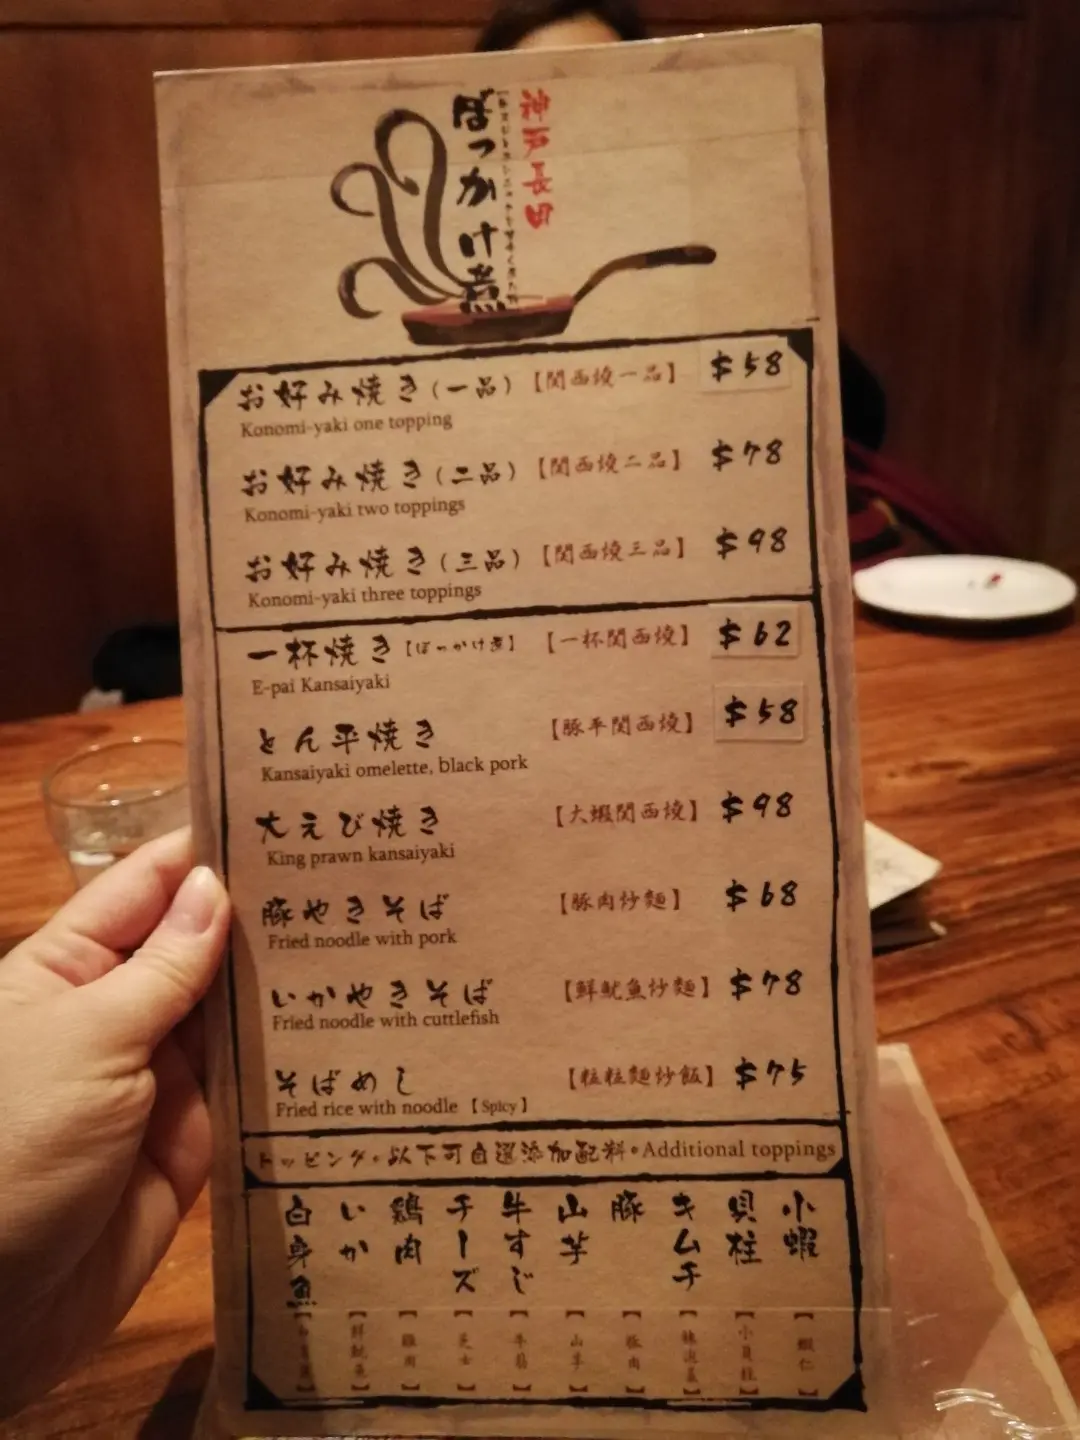 神戸長田
ぼっかけ煮
お好み焼き(一品)【関西燒一品】 $58
Konomi-yaki one topping
お好み焼き(二品)【関西燒二品】 $78
Konomi-yaki two toppings
お好み焼き(三品)【関西燒三品】 $98
Konomi-yaki three toppings
一杯焼き【ぼっかけ煮】【一杯関西燒】 $62
E-pai Kansaiyaki
とん平焼き【豚平関西燒】 $58
Kansaiyaki omelette, black pork
大えび焼き【大蝦関西燒】 $98
King prawn kansaiyaki
豚やきそば【豚肉炒麵】 $68
Fried noodle with pork
いかやきそば【鮮魷魚炒麵】 $78
Fried noodle with cuttlefish
そばめし【粒粒麵炒飯】 $75
Fried rice with noodle 【Spicy】
トッピング•以下可自選添加配料•Additional toppings
小蝦【蝦仁】
貝柱【小貝柱】
キムチ【辣泡菜】
豚【豚肉】
山芋【山芋】
牛すじ【牛筋】
チーズ【芝士】
鶏肉【雞肉】
いか【鮮魷魚】
白身魚